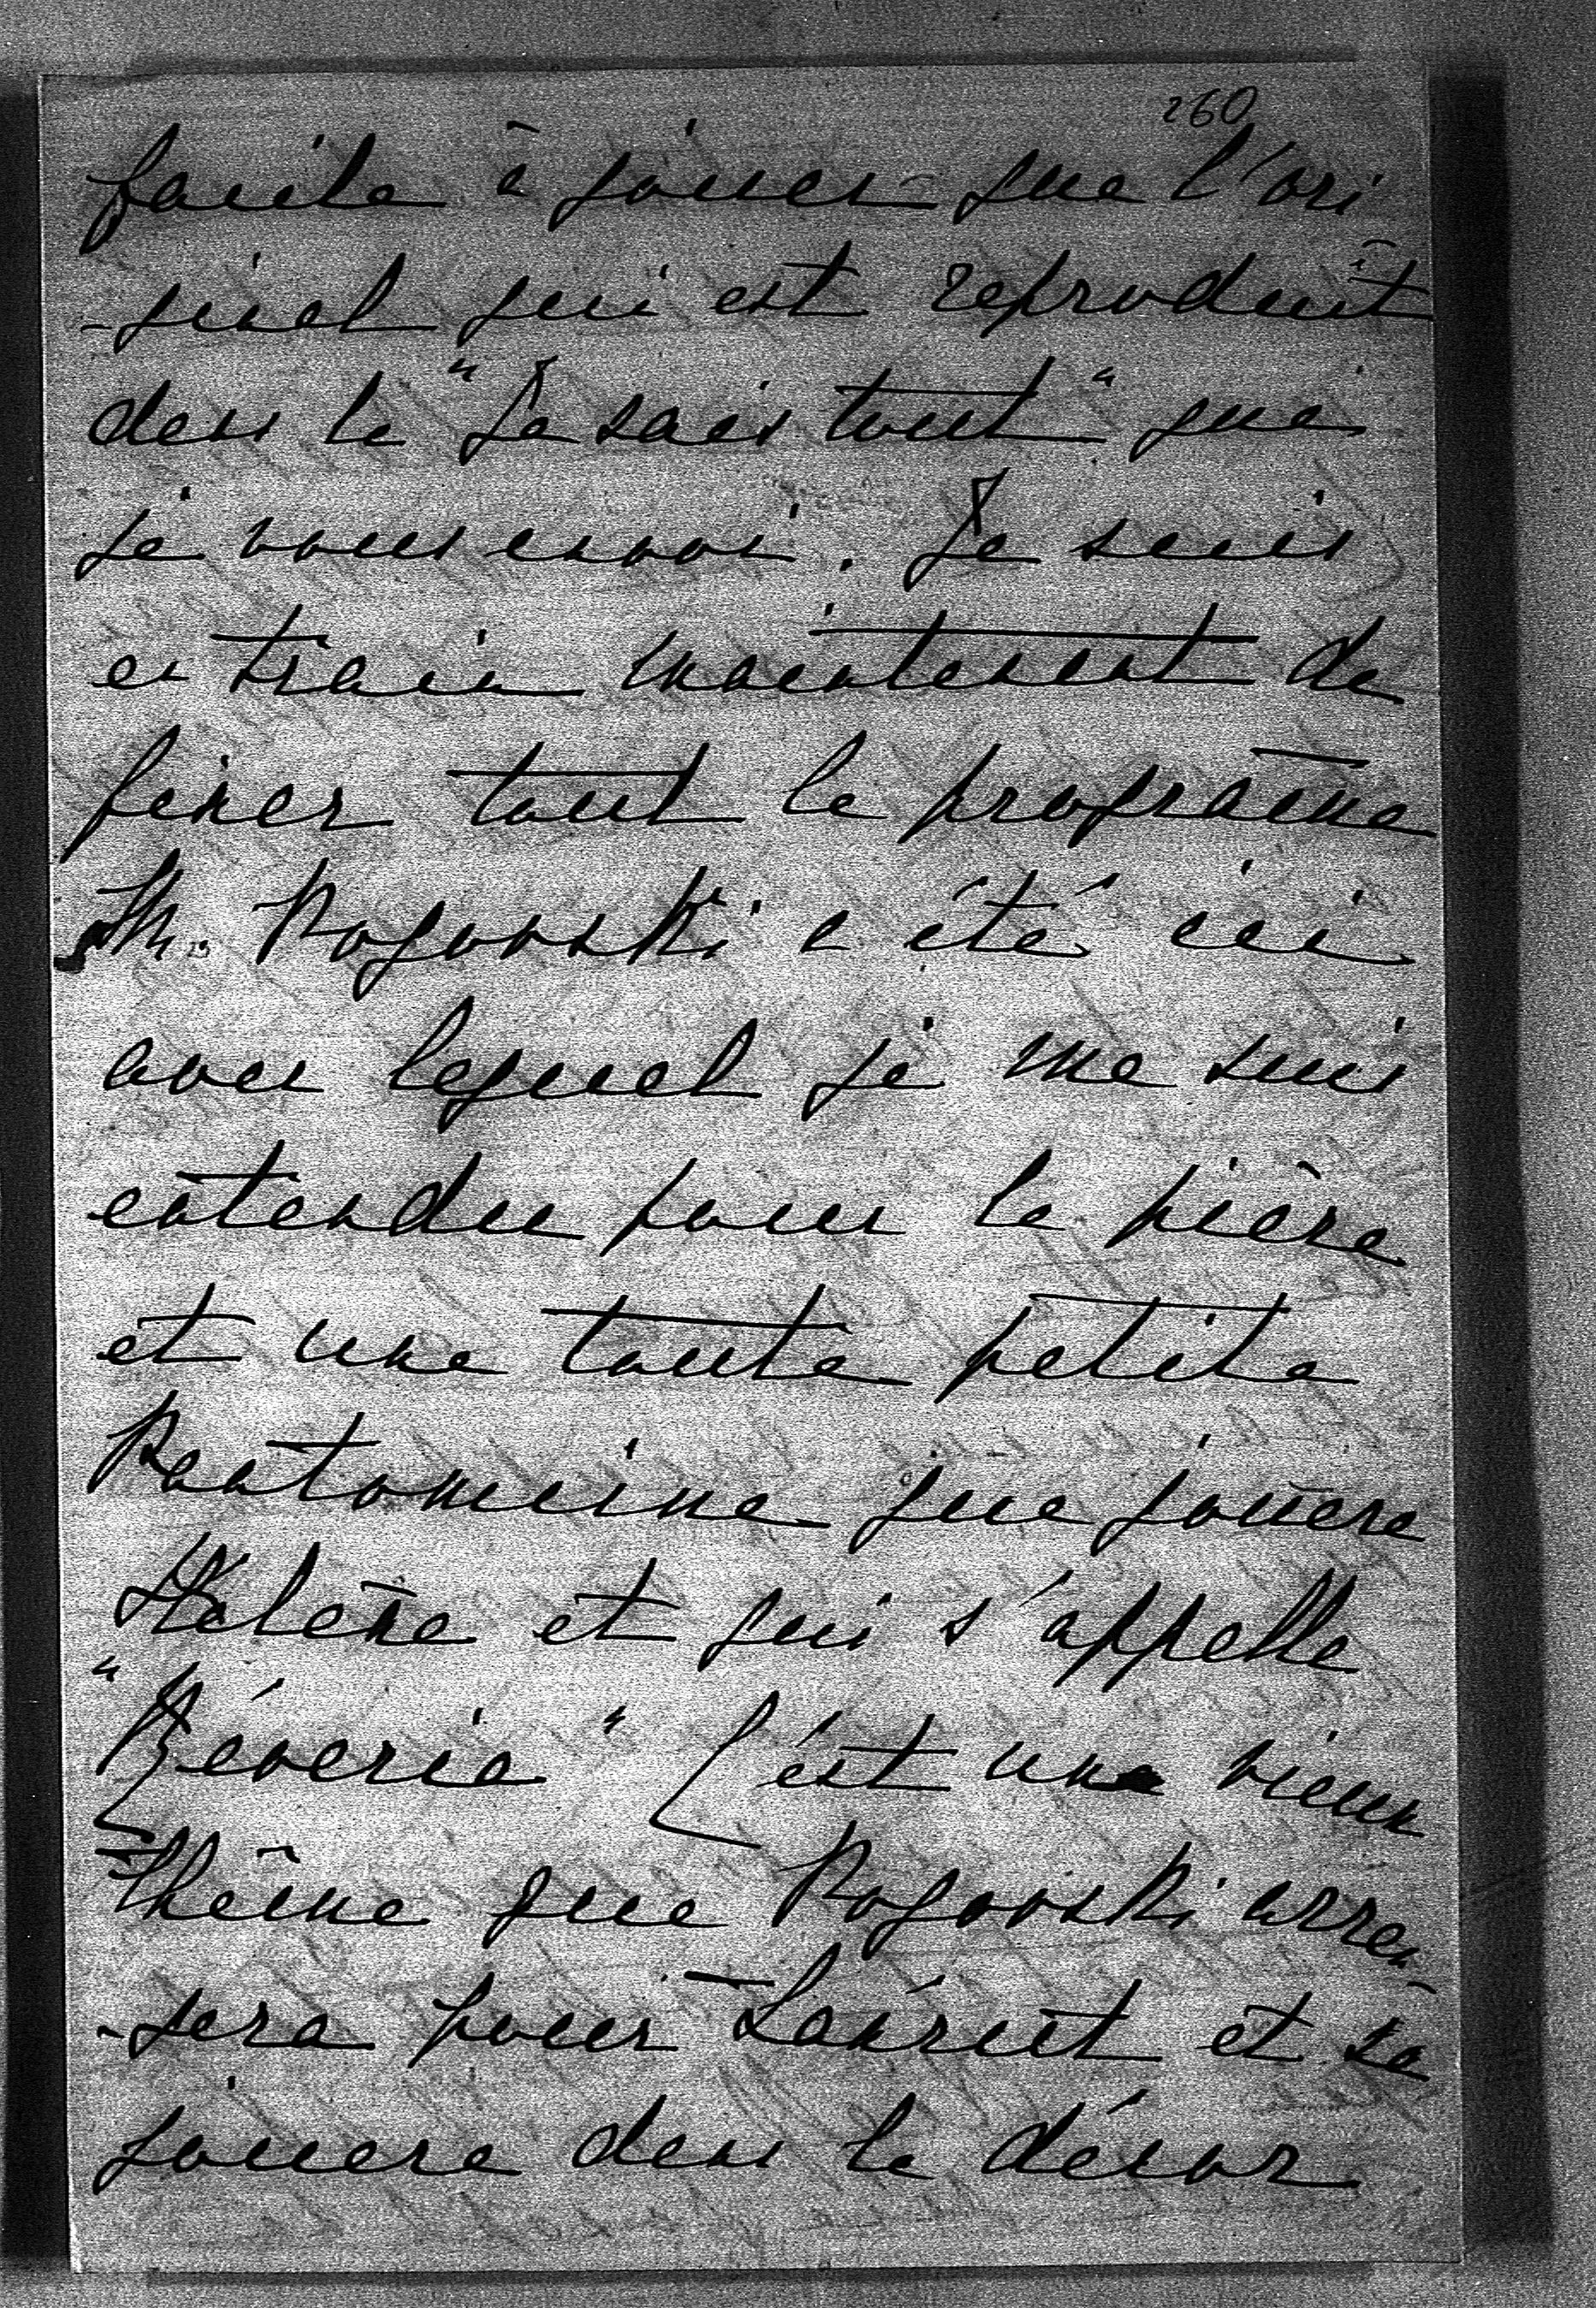 260
facile à jouer que l'ori
-ginal qui est reproduit
dans le "Je sais tout" que
je vous envoi. Je suis
en train maintenant de
fixer tout le programe
M. Rogowski a été ici
avec lequel je me suis
entendu pour la pièce
et une toute petite
Pantomime que jouera
Hélène et qui s'appelle
"Rêverie" C'est une vieux
thême que Rogowski arran-
-gera pour et sa
jouera dans le décor